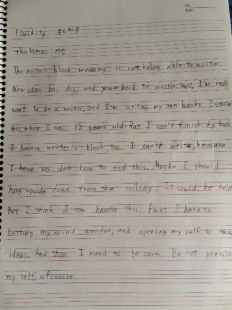 The writer's block meaning is not being able to write.
New idea I'm dry, and you hard to write. Well, I'm really
want to be a writer, and I'm writing my own books. I
this when I was 13 years old. But I can't finish my book
I have writer's block, too. I can't write, because
I have no idea how to end this. Maybe I should
hang upside down from the ceiling. It could be help
But I think I can handle this. First I have to
letting my mind wander, and opening my self to new
ideas. And than I need to be calm. Do not
my self, of course.